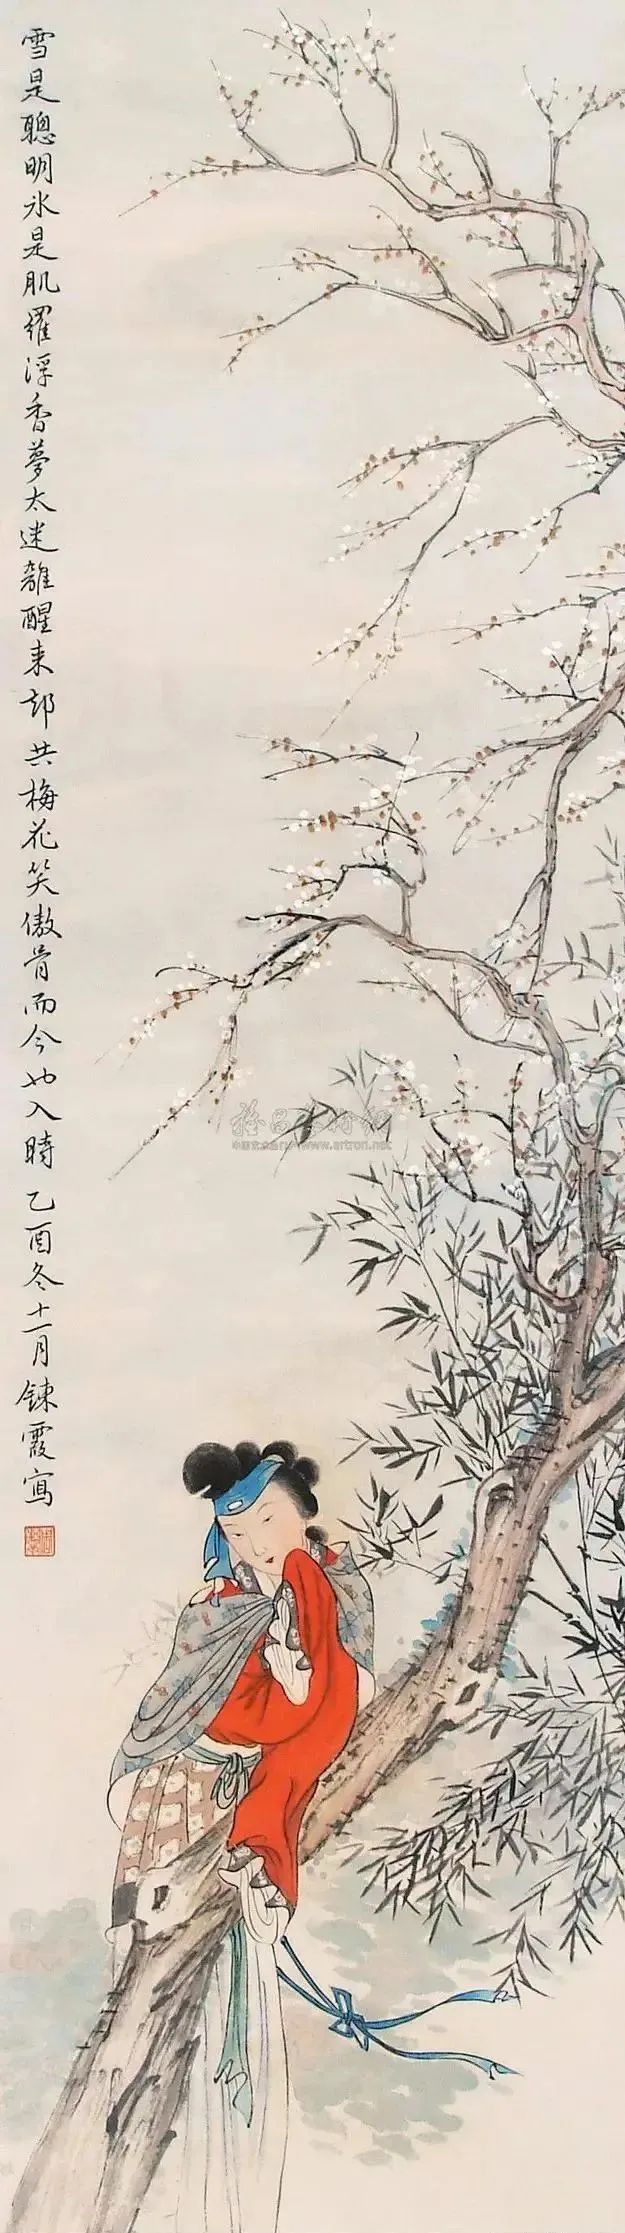 雪是聰明冰是肌羅浮香夢太迷離醒來却共梅花笑傲骨而今也入時乙酉冬十一月鍊霞寫
www.artron.net